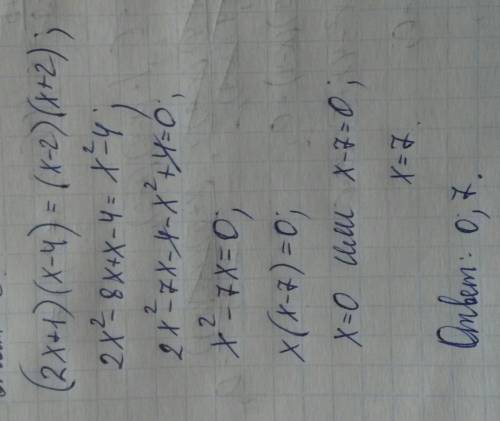 (2x+1)(x-4) = (x-2)(x+2);
2x²-8x+x-4 = x²-4;
2x²-7x-4-x²+4=0;
x²-7x=0;
x(x-7)=0;
x=0 или x-7=0;
x=7.
Ответ: 0; 7.